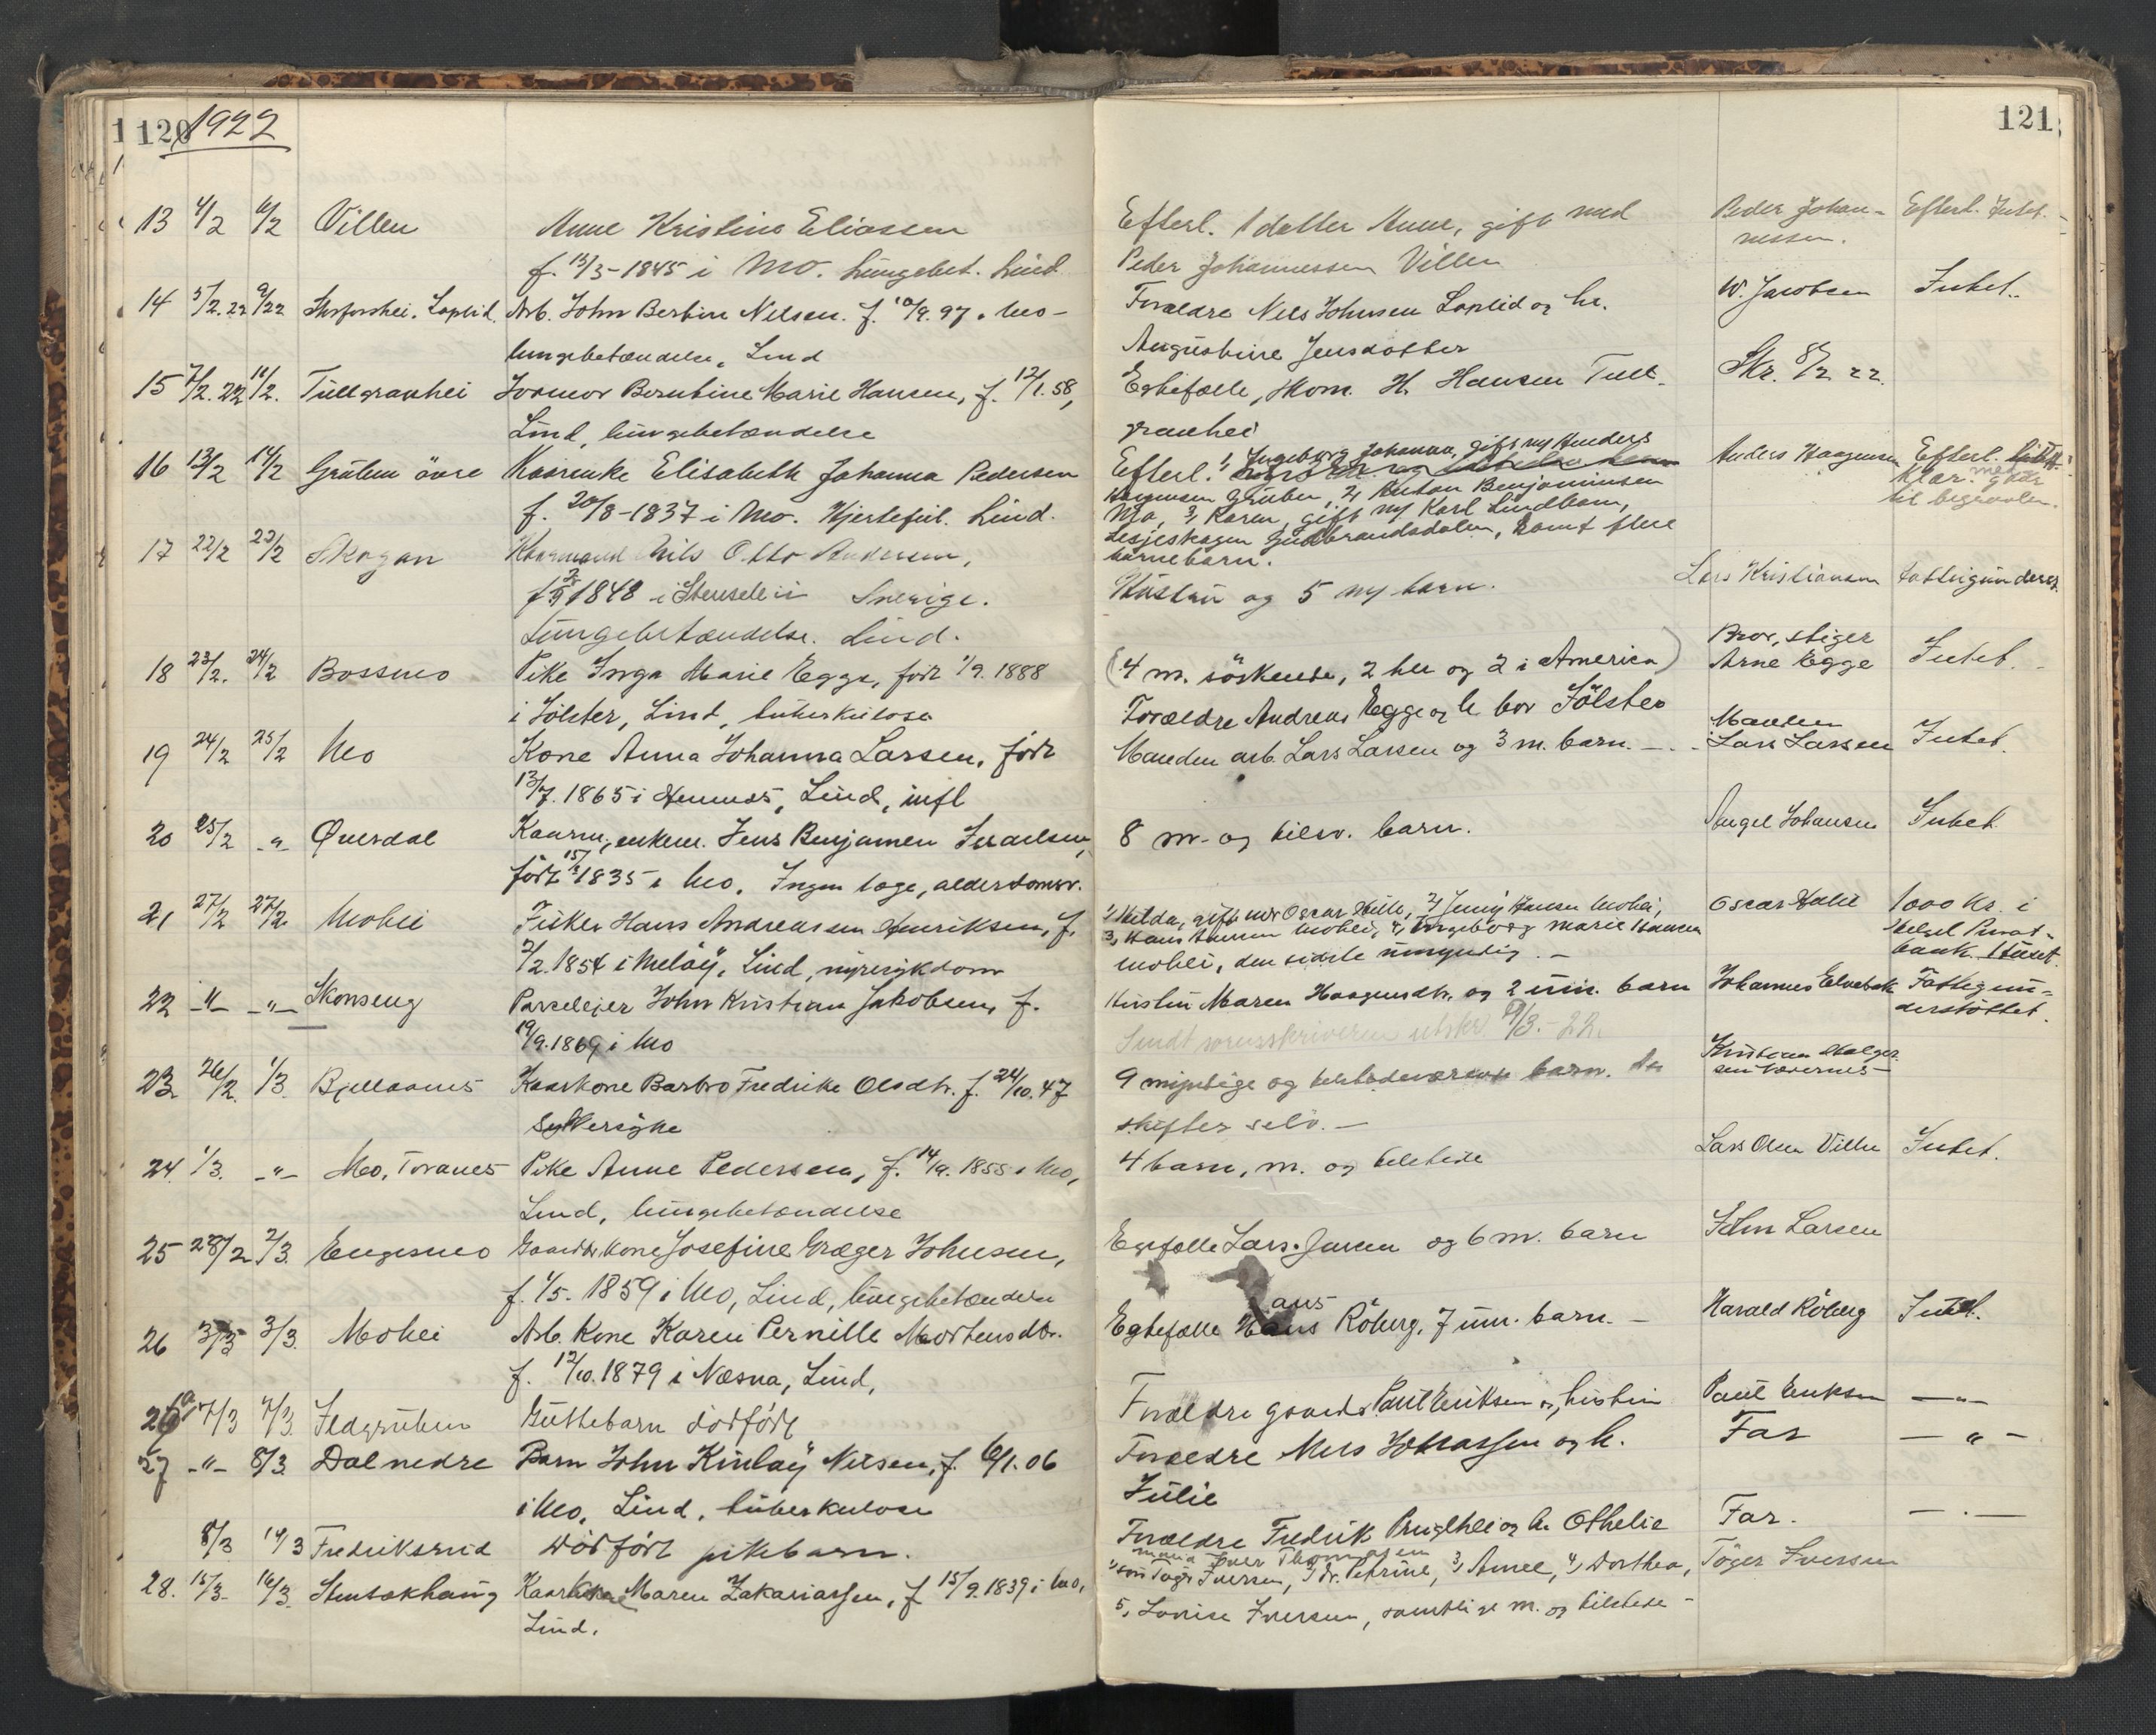 120 1922
13 4/2 6/2 Villen Anne Kristine Eliassen
f. 13/3-1845 i Mo. Lungebet. Lind.
14 5/2.22 9/22 Storforshei. Laplid. Arb. John Berbin Nilsen. f. 10/9.97 i Mo-
lungebetændelse, Lind
15 7/2.22 11/2. Tullgranhei Jormor Berntine Marie Hansen, f. 12/1.58,
Lind, lungebetændelse
16 13/2 14/2 Gruben övre Kaarenke Elisabeth Johanna Pedersen
f. 20/8-1837 i Mo. Hjertefeil. Lind.
17 22/2 23/2 Skogan Kaarmand Nils Otto Andersen,
1848 i Stensele i Sverige.
Lungebetændelse. Lind.
18 23/2. 24/2 Bossmo Pike Inga Marie Egge, født 1/9.1888
i Jölster, Lind, tuberkulose
19 24/2 25/2 Mo Kone Anna Johanna Larsen, født
13/7.1865 i Hemnes, Lind, infl
20 25/2 -"- Øverdal Kaarm., enkem. Jens Benjamen Israelsen,
født 15/ 1835 i Mo. Ingen læge, alderdomsv.
21 27/2 27/2 Mohei Fisker Hans Andreassen Henriksen, f.
2/2.1854 i Melöy, Lind, nyresykdom
22 -"- -"- Skonseng Parselejer John Kristian Jakobsen, f.
19/9.1869 i Mo
23 26/2. 1/3. Bjellaanes Kaarkone Barbro Fredrike Olsdtr. f. 24/10.47
Sukkersyke
24. 1/3. -"- Mo, Toranes Pike Anne Pedersen, f. 14/9.1855 i Mo,
Lind, lungebetændelse
25 28/2 2/3. Engesmo Gaardbr.kone Josefine Græger Johnsen,
f. 1/5.1859 i Mo, Lind, lungebetændelse
26 3/3 3/3. Mohei Arb. Kone Karen Pernille Mortensdtr.
f. 12/10.1879 i Næsna, Lind,
26a 7/3 7/3 Ildgruben Guttebarn dødfødt
27 -"- 8/3 Dalnedre Barn John Kinlay Nilsen, f. 6/1.06
i Mo, Lind, tuberkulose
8/3 14/3 Fredriksrud Dødfødt pikebarn.
28. 15/3 16/3 Stensokhaug Kaarkone Maren Zakariassen, f 15/9.1839 i Mo,
Lind.
121
Efterl. 1 datter Anne, gift med Peder Johan- Efterl. Intet.
Peder Johannessen Villen nessen.
Foreldre Nils Johnsen Laplid og hr. W. Jacobsen Intet.
Augustine Jensdatter
Egtefælle, skom. H. Hansen Tull- Skr. 8/2 22.
granhei
Efterl. 1, Ingeborg Johanna, gift m/ Anders Anders Haagensen Efterl. litt
Haagensen Gruben, 2, Anton Benjaminsen klær. med gaar
Mo, 3, Karen, gift m/ Karl Lindbom, til begravelsen.
Lesjeskogen Gudbrandsdalen, samt flere
barnebarn.
Hustru og 5 my barn. Lars Kristiansen fattigunderst.
(4 m. söskende, 2 her og 2 i America) Bror, stiger
Arne Egge Intet.
Foreldre Andreas Egge og h. bor Jölster
Manden arb. Lars Larsen og 3 m. barn. Manden
Lars Larsen Intet.
8 m. og tilsv. barn. Angel Johansen Intet
1, Hilda, gift m/ Oscar Halle, 2, Jenny Hansen Mohei, Oscar Halle 1000 Kr. i
3, Hans Hansen Mohei, 4, Ingeborg Marie Hansen Helgel. Privat-
Mohei, den sidste umyndig. bank. 1 huset.
Hustru Maren Haagensdtr. og 2 um. barn Johannes Elvebak Fattigun-
derstøttet.
Sendt sorenskriveren utskr. 9/3.-22.
9 myndige og tilstedeværende barn. de Kristian
skifter selv.
4 barn, m. og tilstede Lars Olsen Villen Intet.
Egtefælle Lars Jensen og 6 m. barn John Larsen
Egtefælle Hans Röberg, 7 um. barn. Harald Röberg Intet.
Foreldre gaardbr. Paul Eriksen og hustru Paul Eriksen -"-
Foreldre Nils Johansen og h. Far -"-
Julie
Foreldre Fredrik Brugthei og h. Othelie Far. -.-
mand Iver Thomassen
1, søn Töger Iversen, 2, dr. Petrine, 3, Anne, 4, Dorthea, Töger Iversen
5, Lovise Iversen, samtlige m. og tilstede-